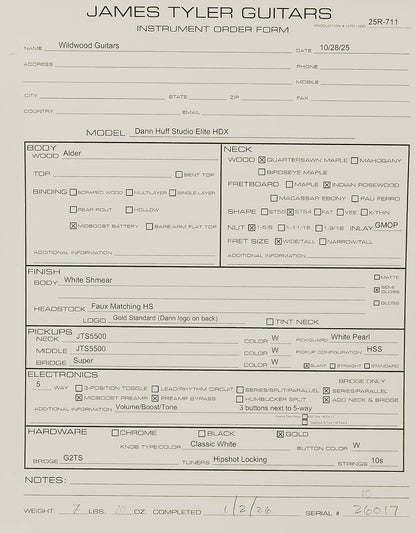 JAMES TYLER GUITARS
INSTRUMENT ORDER FORM 25R-711
NAME Wildwood Guitars DATE 10/28/25
ADDRESS PHONE
MOBILE
CITY STATE ZIP FAX
COUNTRY EMAIL
MODEL Dann Huff Studio Elite HDX
BODY
WOOD Alder
TOP BENT TOP
BINDING SCRAPED WOOD MULTILAYER SINGLE-LAYER
REAR ROUT HOLLOW
MIDBOOST BATTERY BARE-ARM FLAT TOP
ADDITIONAL INFORMATION
NECK
WOOD QUARTERSAWN MAPLE MAHOGANY
BIRDSEYE MAPLE
FRETBOARD MAPLE INDIAN ROSEWOOD
MACASSAR EBONY PAU FERRO
SHAPE ST59 ST64 FAT VEE X-THIN
NUT 1-5/8 1-11/16 1-9/16 INLAY GMOP
FRET SIZE WIDE/TALL NARROW/TALL
ADDITIONAL INFORMATION
FINISH
BODY White Shmear
MATTE
SEMI GLOSS
GLOSS
HEADSTOCK Faux Matching HS
LOGO Gold Standard (Dann logo on back) TINT NECK
PICKUPS
NECK JTS5500 COLOR W PICKGUARD White Pearl
MIDDLE JTS5500 COLOR W PICKUP CONFIGURATION HSS
BRIDGE Super COLOR W SLANT STRAIGHT STANDARD
ELECTRONICS
BRIDGE ONLY
5 WAY 3-POSITION TOGGLE LEAD/RHYTHM CIRCUIT SERIES/SPLIT/PARALLEL SERIES/PARALLEL
MIDBOOST PREAMP BYPASS PREAMP HUMBUCKER SPLIT ADD NECK & BRIDGE
ADDITIONAL INFORMATION Volume/Boost/Tone 3 buttons next to 5-way
HARDWARE CHROME BLACK GOLD
KNOB TYPE/COLOR Classic White BUTTON COLOR W
BRIDGE G2TS TUNERS Hipshot Locking STRINGS 10s
NOTES:
WEIGHT: 7 LBS. 10 OZ. COMPLETED 1/2/26 SERIAL # 26017